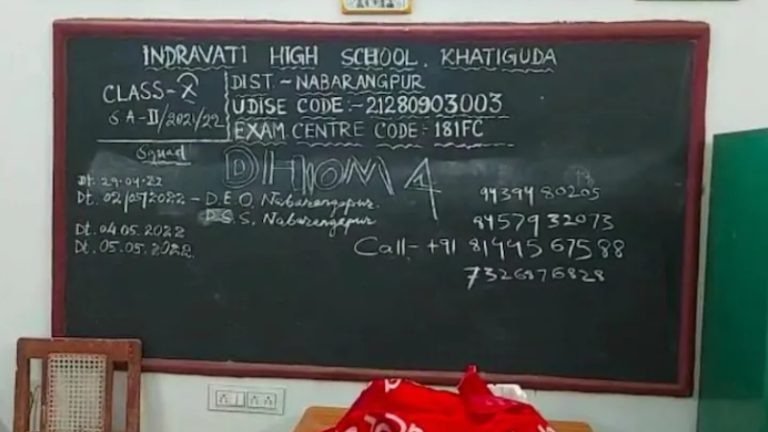 INDRAVATI HIGH SCHOOL. KHATIGUDA
CLASS-X
SA-II/2021/22
DIST.- NABARANGPUR
UDISE CODE:-21280903003
EXAM CENTRE CODE:-181FC
Squad
DHOOM 4
Dt. 29.04.22
Dt. 02/05/2022 - D.E.O, Nabarangapur.
D.S.S, Nabarangapur
Dt. 04.05.2022
Dt. 05.05.2022
9439480205
8457932073
Call- +91 8144567588
7326876828